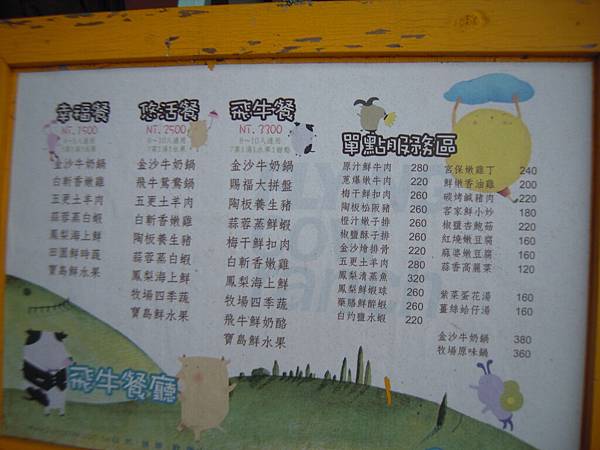 幸福餐
NT. 1500
金沙牛奶鍋
白斬香嫩雞
五更土羊肉
蒜蓉蒸白蝦
鳳梨海上鮮
田園鮮時蔬
寶島鮮水果
悠活餐
NT. 2500
金沙牛奶鍋
飛牛鴛鴦鍋
五更土羊肉
白斬香嫩雞
陶板養生豬
蒜蓉蒸白蝦
鳳梨海上鮮
牧場四季蔬
寶島鮮水果
飛牛餐
NT. 3300
金沙牛奶鍋
賜福大拼盤
陶板養生豬
蒜蓉蒸鮮蝦
梅干鮮扣肉
白斬香嫩雞
鳳梨海上鮮
牧場四季蔬
飛牛鮮奶酪
寶島鮮水果
單點服務區
原汁鮮牛肉 280
蔥爆嫩牛肉 220
梅干鮮扣肉 260
陶板培限豬 260
橙汁嫩子排 260
椒鹽酥子排 260
金沙燴排骨 220
五更土羊肉 280
鳳梨清蒸魚 320
鳳梨鮮蝦球 260
藥膳鮮醉蝦 260
白灼鹽水蝦 220
宮保嫩雞丁 240
鮮嫩香油雞 200
碳烤鹹豬肉 220
客家鮮小炒 180
椒鹽杏鮑菇 220
紅燒嫩豆腐 160
麻婆嫩豆腐 160
蒜香高麗菜 120
紫菜蛋花湯 160
薑絲蛤仔湯 160
金沙牛奶鍋 380
牧場原味鍋 360
飛牛餐廳